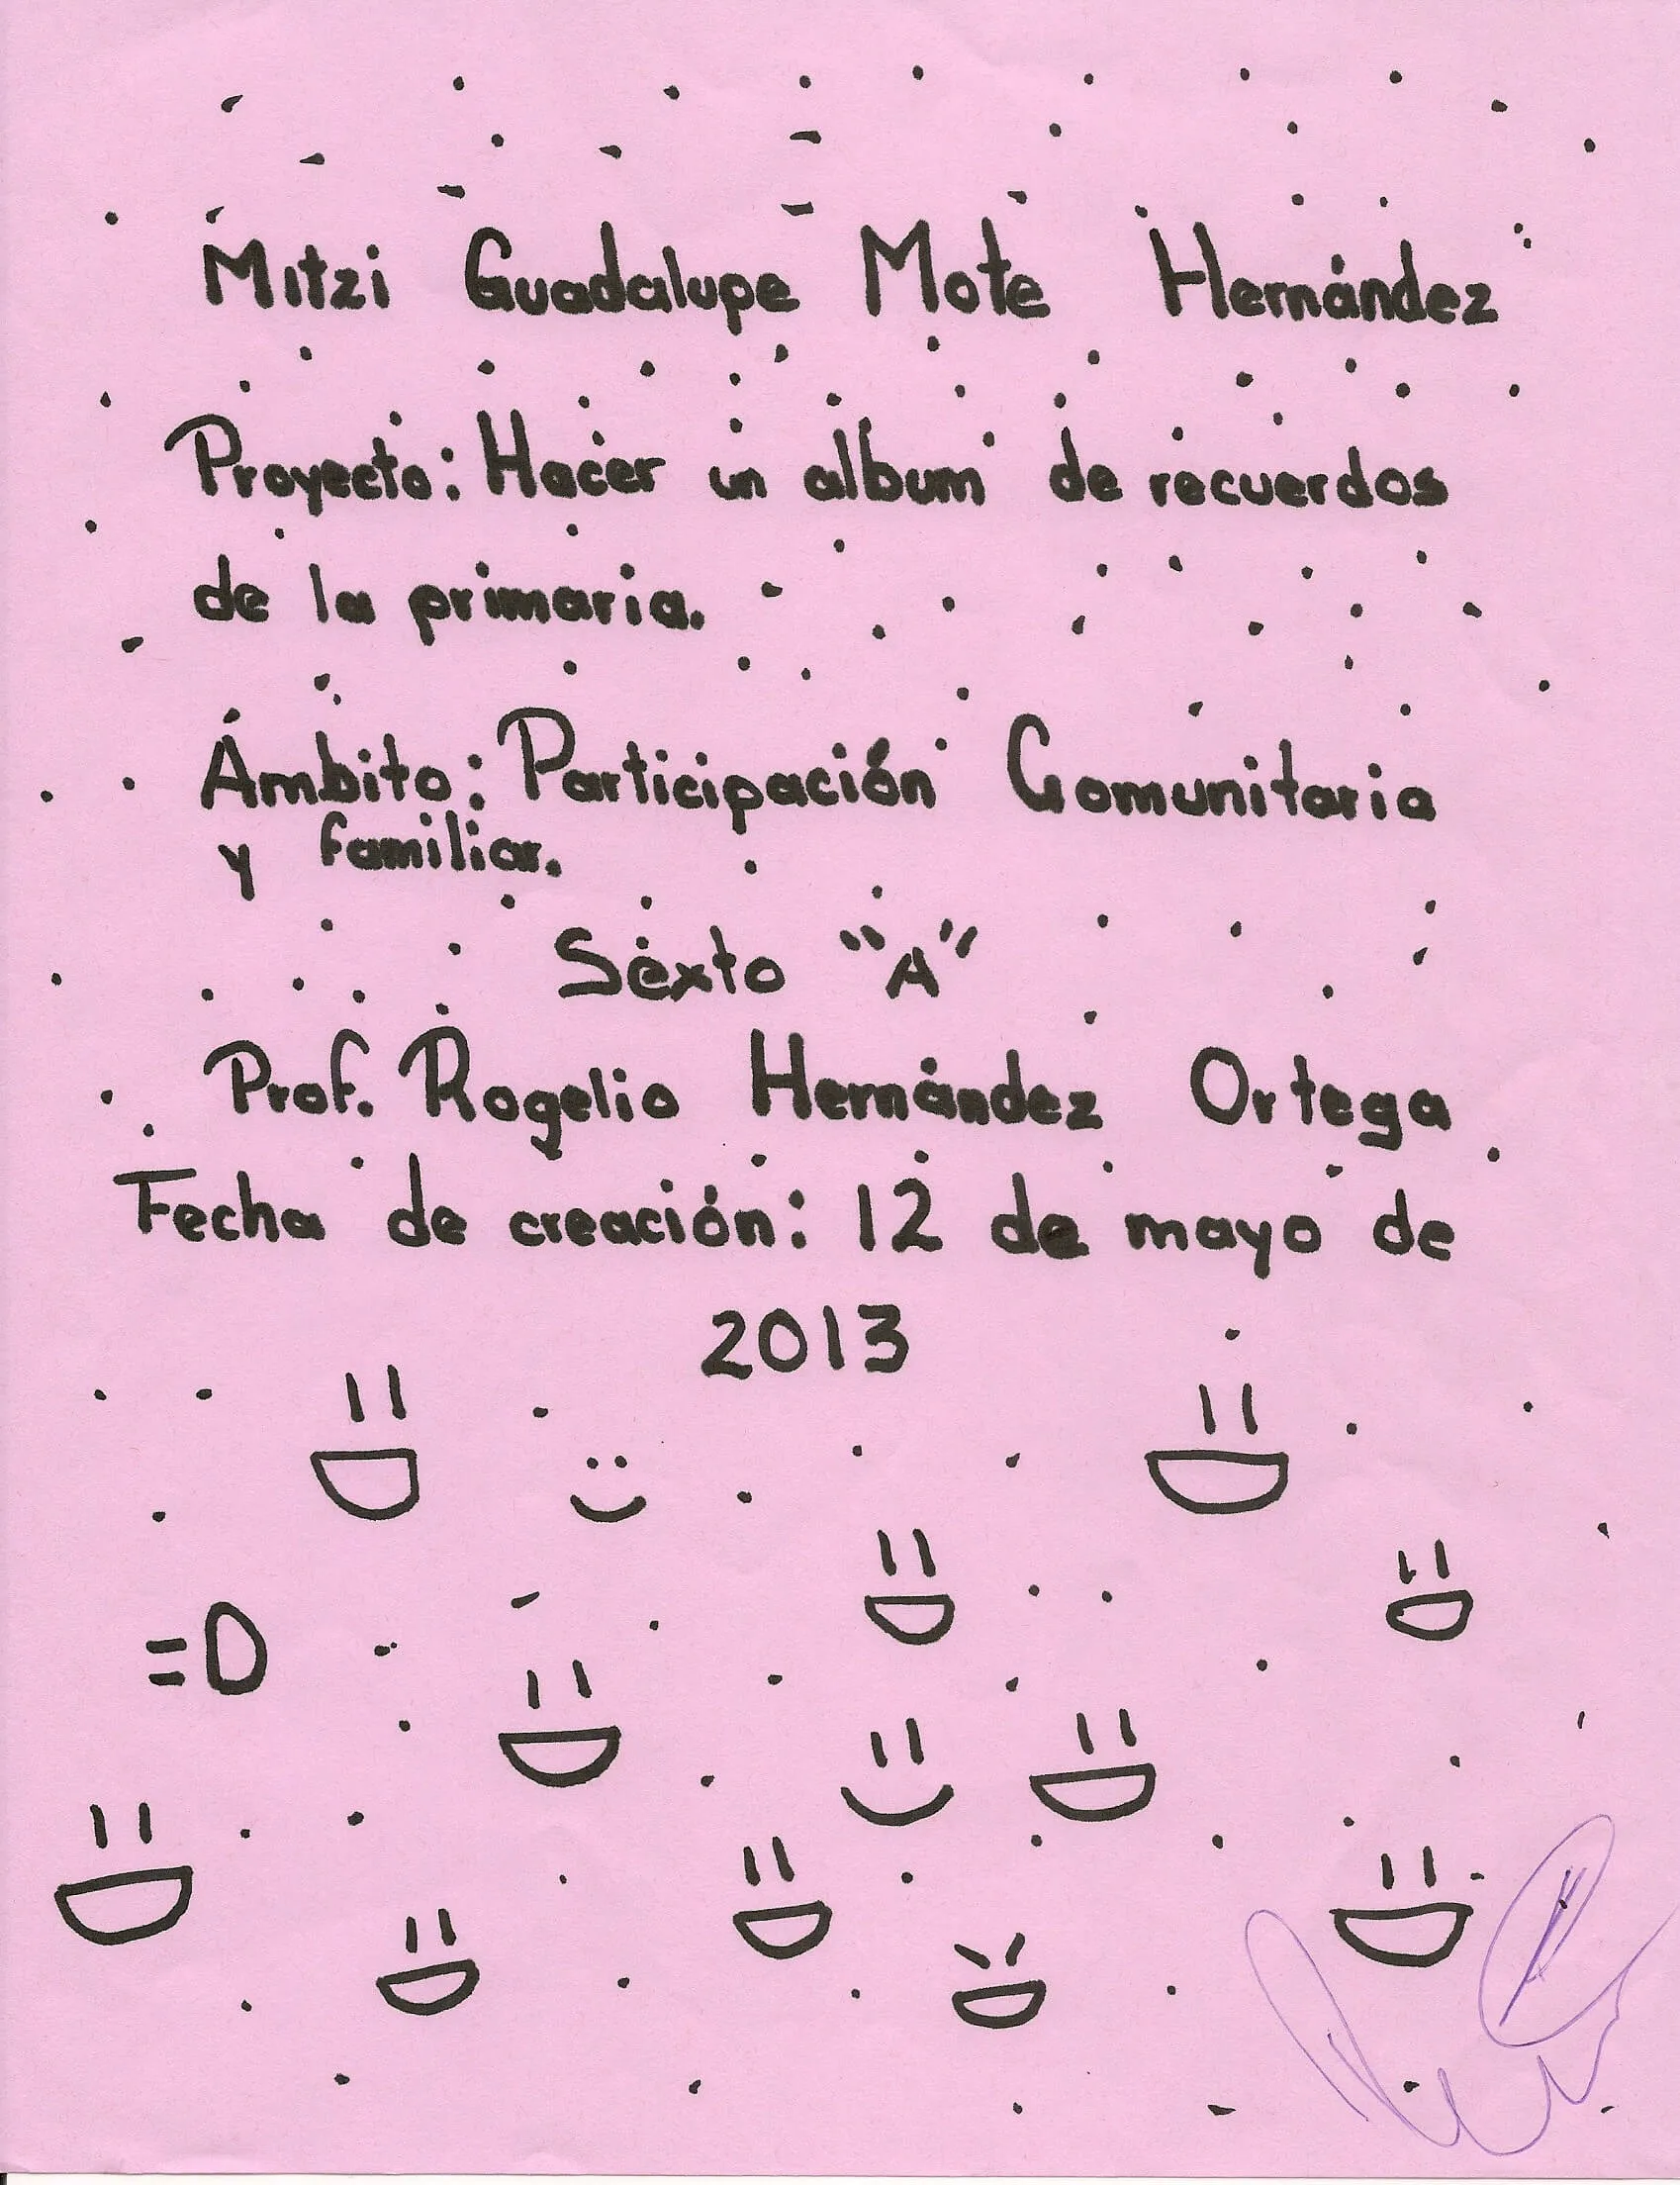 Mitzi Guadalupe Mote Hernández
Proyecto: Hacer un álbum de recuerdos
de la primaria.
Ámbito: Participación Comunitaria
y familiar.
Sexto "A"
Prof. Rogelio Hernández Ortega
Fecha de creación: 12 de mayo de
2013
=D